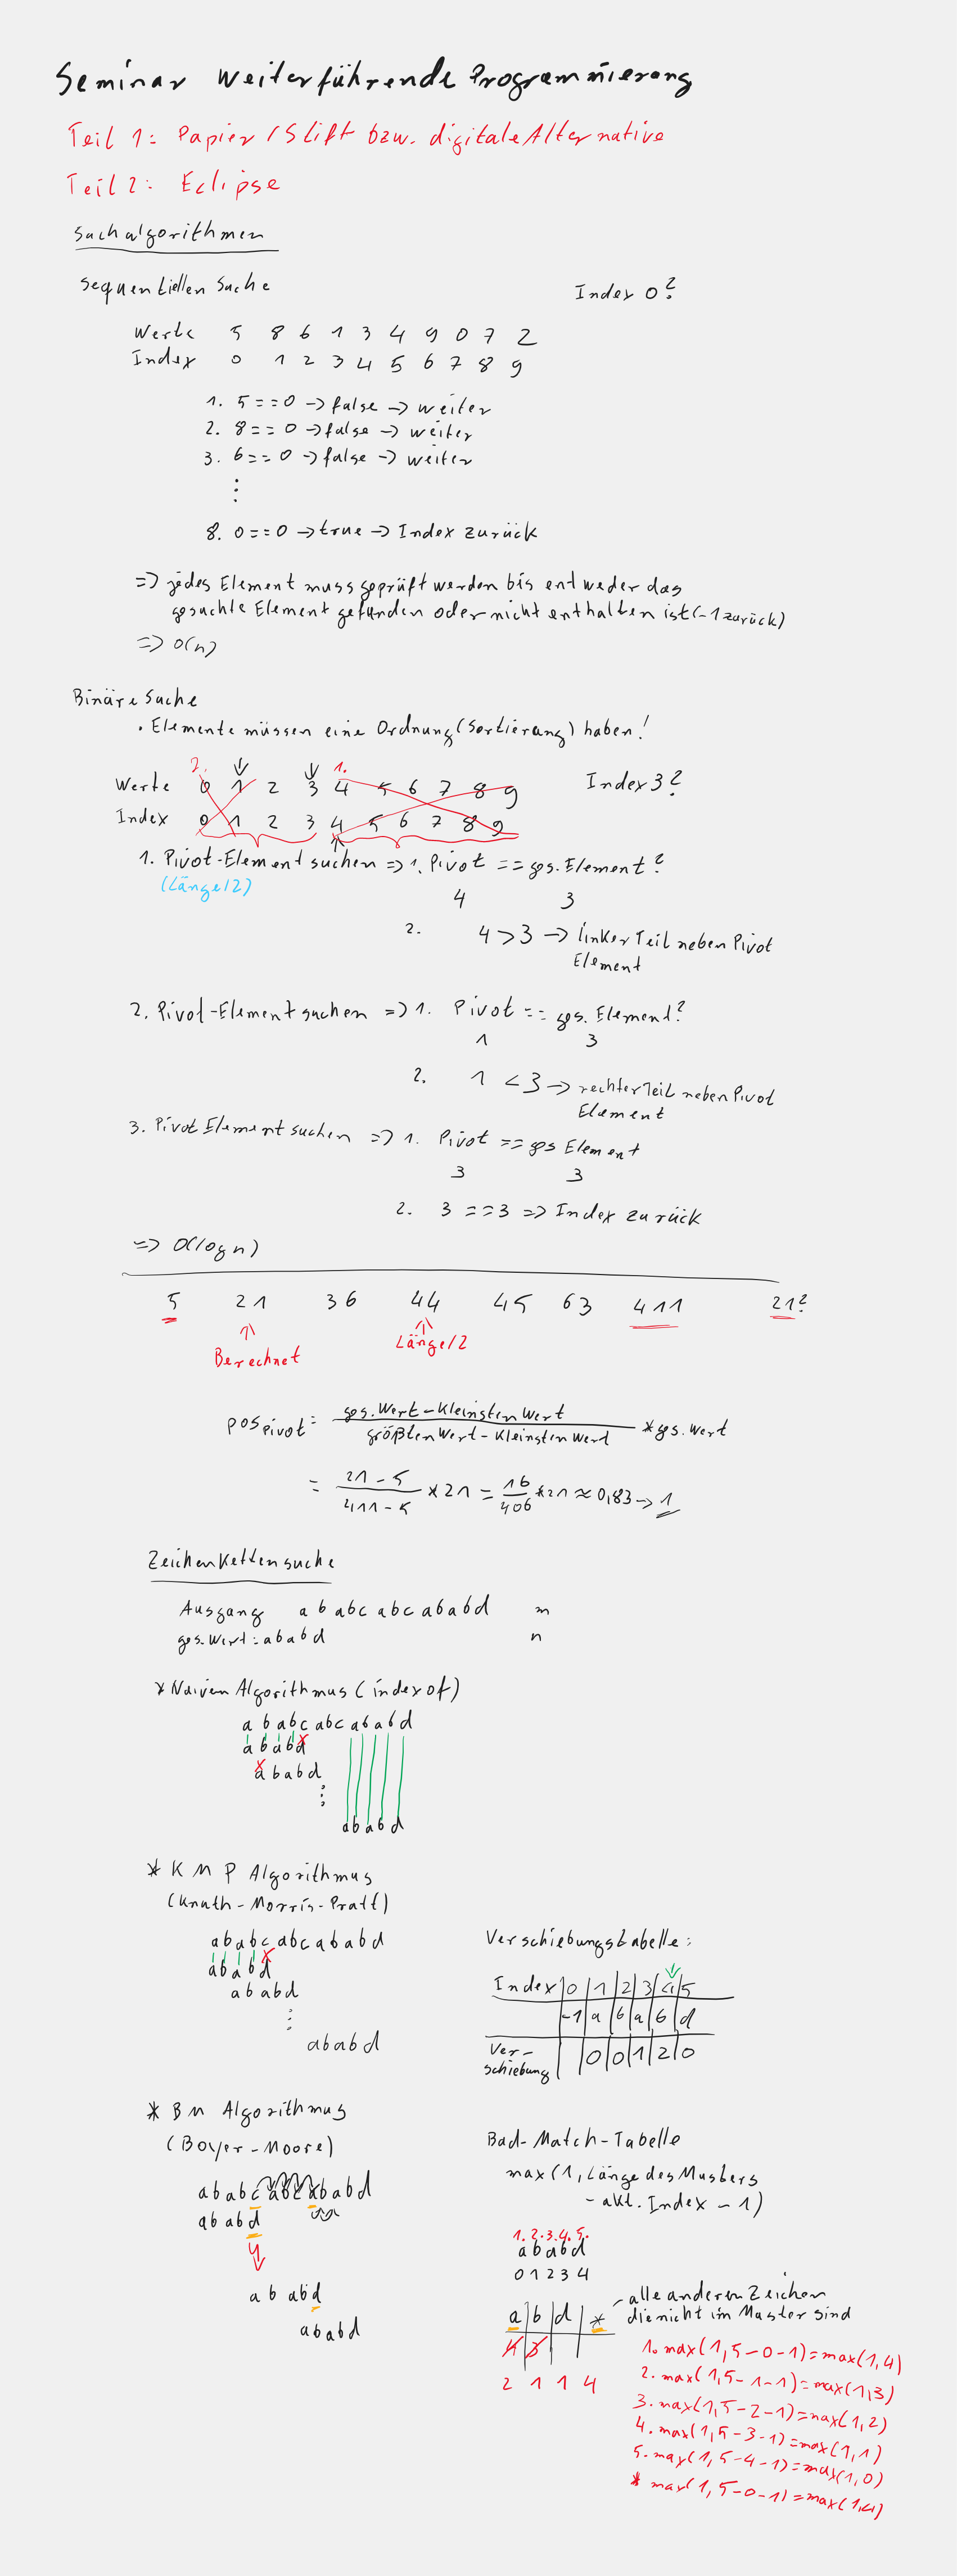 Seminar Weiterführende Programmierung
Teil 1: Papier / Stift bzw. digitale Alternative
Teil 2: Eclipse
Suchalgorithmen
Sequentiellen Suche
Index 0?
Werte 5 8 6 1 3 4 9 0 7 2
Index 0 1 2 3 4 5 6 7 8 9
1. 5 == 0 -> false -> weiter
2. 8 == 0 -> false -> weiter
3. 6 == 0 -> false -> weiter
⋮
8. 0 == 0 -> true -> Index zurück
=> jedes Element muss geprüft werden bis entweder das
gesuchte Element gefunden oder nicht enthalten ist (-1 zurück)
=> O(n)
Binäre Suche
• Elemente müssen eine Ordnung (Sortierung) haben!
2. 1.
Werte 0 1 2 3 4 5 6 7 8 9 Index 3?
Index 0 1 2 3 4 5 6 7 8 9
1. Pivot-Element suchen => 1. Pivot == ges. Element?
(Länge/2)
4 3
2. 4 > 3 -> linker Teil neben Pivot
Element
2. Pivot-Element suchen => 1. Pivot == ges. Element?
1 3
2. 1 < 3 -> rechter Teil neben Pivot
Element
3. Pivot Element suchen => 1. Pivot == ges Element
3 3
2. 3 == 3 => Index zurück
=> O(log n)
5 21 36 44 45 63 411 21?
Berechnet Länge/2
pos Pivot = (ges. Wert - Kleinsten Wert) / (größten Wert - Kleinsten Wert) * ges. Wert
= (21 - 5) / (411 - 5) * 21 = 16/406 * 21 ≈ 0,83 -> 1
Zeichenkettensuche
Ausgang a b abc abc ababd m
ges. Wert: ababd n
* Naiven Algorithmus (index of)
a b abc abc ababd
a b abd
x
ababd
⋮
ababd
* KMP Algorithmus
(Knuth-Morris-Pratt)
ababc abc ababd
ababd
ababd
⋮
ababd
Verschiebungstabelle:
Index | 0 | 1 | 2 | 3 | 4 | 5
-1 | a | b | a | b | d
Ver-
schiebung | | 0 | 0 | 1 | 2 | 0
* BM Algorithmus
(Boyer-Moore)
ababc abc ababd
ababd
4
ab abd
ababd
Bad-Match-Tabelle
max(1, Länge des Musters
- akt. Index - 1)
1. 2. 3. 4. 5.
ababd
0 1 2 3 4
alle anderen Zeichen
die nicht im Muster sind
a | b | d | *
4 3
2 1 1 4
1. max(1, 5-0-1) = max(1,4)
2. max(1, 5-1-1) = max(1,3)
3. max(1, 5-2-1) = max(1,2)
4. max(1, 5-3-1) = max(1,1)
5. max(1, 5-4-1) = max(1,0)
* max(1, 5-0-1) = max(1,4)